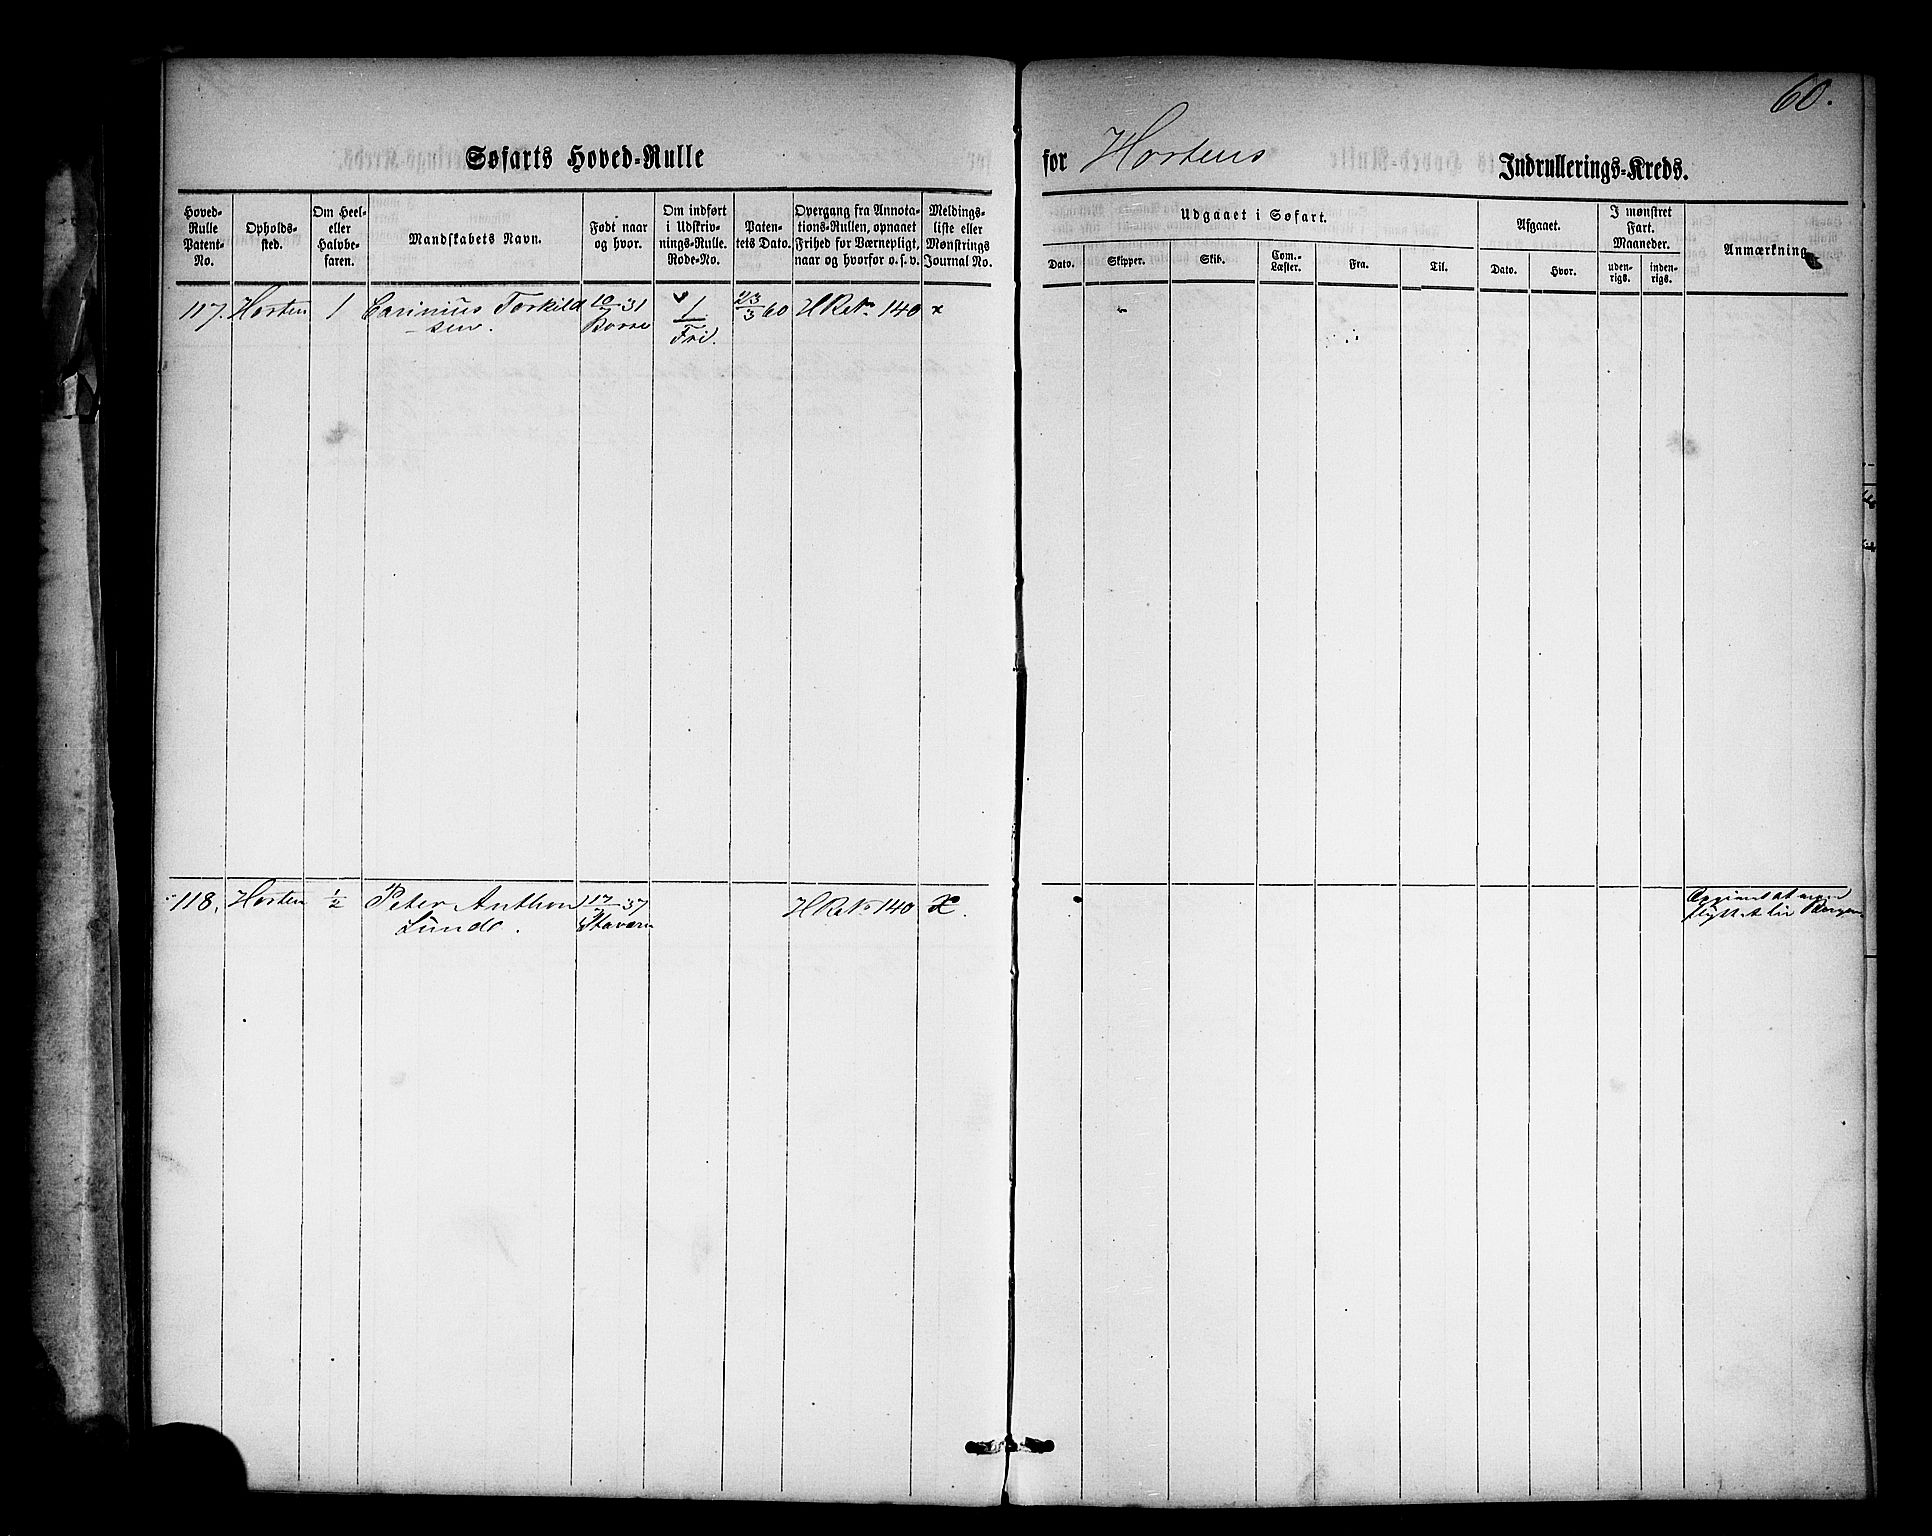 60.
Søfarts Hoved-Rulle for Hortens Indrullerings-Kreds.
Hoved-
Rulle
Patent-
No.
Opholds-
sted.
Om Heel-
eller
Halvbe-
faren.
Mandskabets Navn.
Født naar
og hvor.
Om indført
i Udskriv-
nings-Rulle.
Rode-No.
Paten-
tets Dato.
Overgang fra Annota-
tions-Rullen, opnaaet
Frihed for Værnepligt,
naar og hvorfor o. s. v.
Meldings-
liste eller
Mønstrings
Journal No.
Udgaaet i Søfart.
Dato.
Skipper.
Skib.
Com.-
Læster.
Fra.
Til.
Afgaaet.
Dato.
Hvor.
I mønstret
Fart.
Maaneder.
uden-
rigs.
inden-
rigs.
Anmærkning.
117. Horten 1 Carinius Torkild 10/7 31 1 23/3 60 H Re No 140 x
sen. Borre Fri.
118. Horten 1/2 Peter Anthon 17/ 37 H Re No 140 X.
Lund. Stavern
flyttet til Bergen